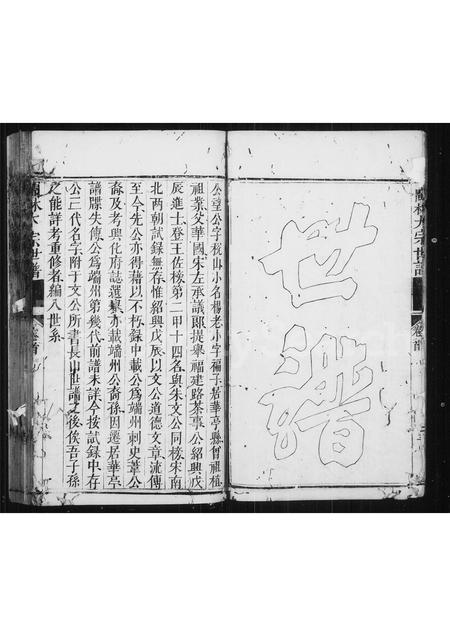 世譜
西林大宗世譜
卷首
公望公字稅山小名楊老小字福子居華亭縣曾祖植
祖業父華國宋左承議郎提舉福建路茶事公紹興戊
辰進士登王佐榜第二甲十四名與朱文公同榜宋南
北兩朝試錄無存惟紹興戊辰以文公道德文章流傳
至今先公亦得藉以不朽錄中載公為端州刺史葦公
裔及考興化府誌選舉亦載端州公裔孫因遷居華亭
譜牒失傳公為端州第幾代前譜未詳今按試錄中存
公三代名字附于文公所書長山世譜之後俟吾子孫
之能詳考重修者編入世系
西林大宗世譜
卷首